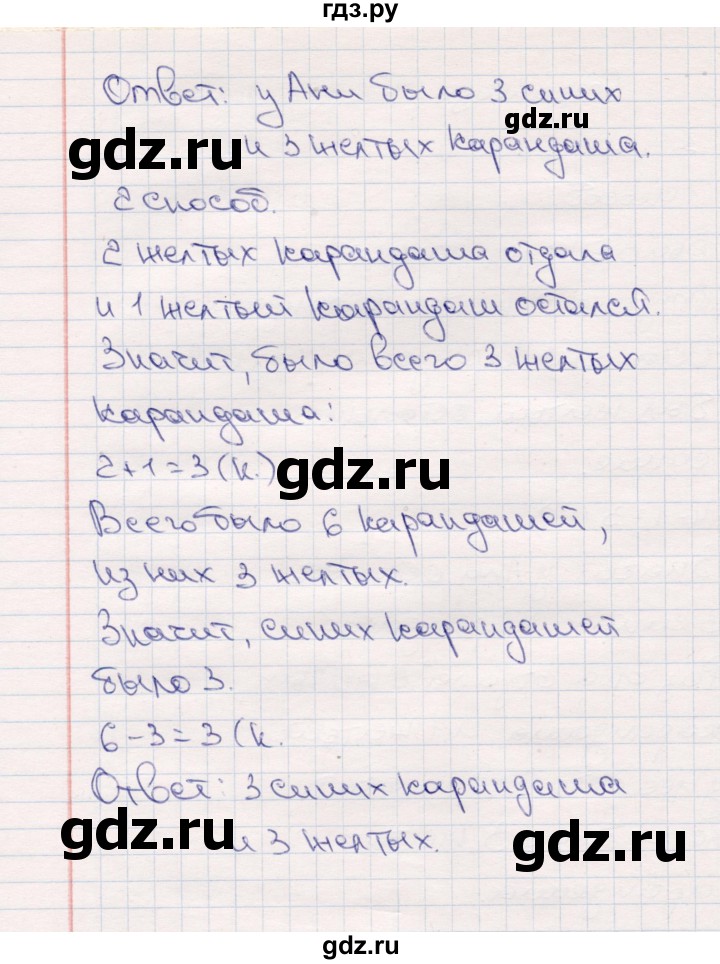 гдз.ру
Ответ: у Ани было 3 синих
gdz.ru
gdz.ru
и 3 желтых карандаша.
2 способ.
2 желтых карандаша отдала
и 1 желтый карандаш остался.
Значит, было всего 3 желтых
карандаша:
2+1=3(к.)
gdz.ru
Всего было 6 карандашей,
из них 3 желтых.
Значит, синих карандашей
было 3.
6-3=3(к.
Ответ: 3 синих карандаша
gdz.ru
и 3 желтых.
gdz.ru
gdz.ru